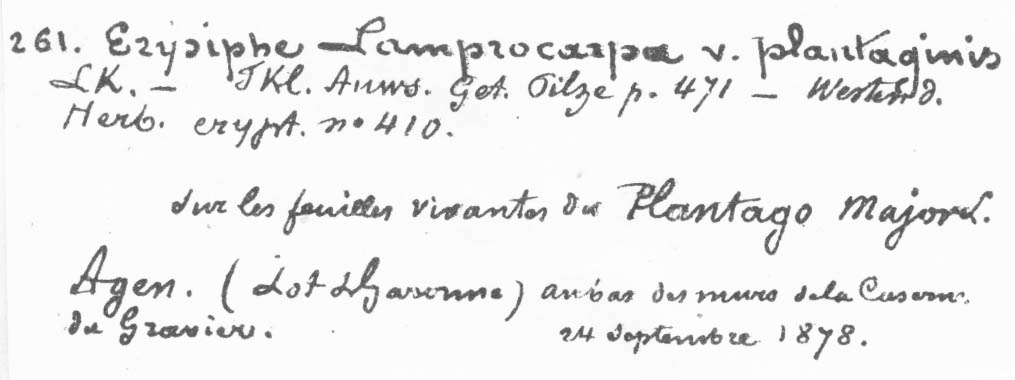 261. Erysiphe Lamprocarpa v. plantaginis
LK. — FKl. Anws. Get. Pilze p. 471 — Westend.
Herb. crypt. no 410.
sur les feuilles vivantes du Plantago Major L.
Agen. (Lot & Garonne) au bas des murs de la Casern.
du Gravier. 24 Septembre 1878.